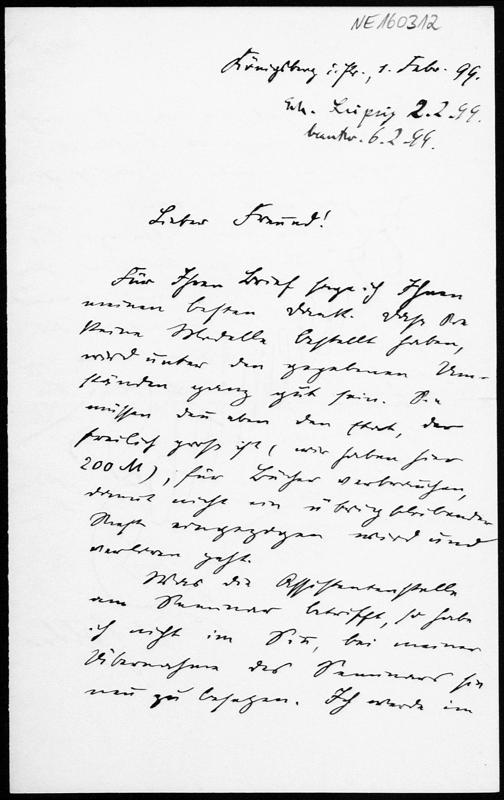 NE160312
Königsberg i. Pr., 1. Febr. 99.
Erh. Leipzig 2.2.99.
beantw. 6.2.99.
Lieber Freund!
Für Ihren Brief sage ich Ihnen
meinen besten Dank. Dass Sie
keine Modelle bestellt haben,
wird unter den gegebenen Um-
ständen ganz gut sein. Sie
müssen den eben den Etat, der
freilich gross ist, (wir haben hier
200 M), für Bücher verbrauchen,
damit nicht ein übrigbleibender
Rest eingezogen wird und
verloren geht.
Was die Assistentenstelle
am Seminar betrifft, so habe
ich nicht im Sinn, bei meiner
Übernahme des Seminars sie
neu zu besetzen. Ich werde im